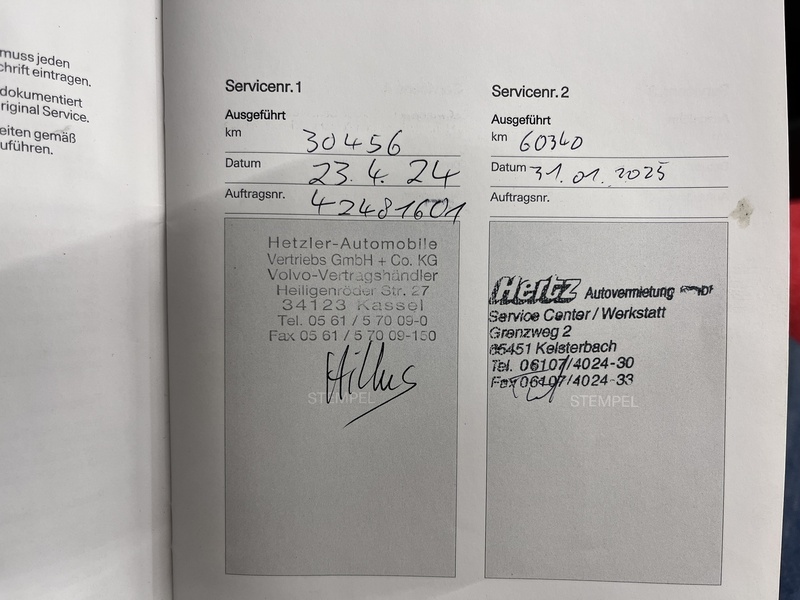 muss jeden
chrift eintragen.
dokumentiert
riginal Service.
eiten gemäß
uführen.
Servicenr. 1
Ausgeführt
km 30456
Datum 23. 4. 24
Auftragsnr. 42481601
Hetzler-Automobile
Vertriebs GmbH + Co. KG
Volvo-Vertragshändler
Heiligenröder Str. 27
34123 Kassel
Tel. 05 61 / 5 70 09-0
Fax 05 61 / 5 70 09-150
STEMPEL
Servicenr. 2
Ausgeführt
km 60340
Datum 31. 01. 2025
Auftragsnr.
Hertz Autovermietung
Service Center / Werkstatt
Grenzweg 2
65451 Kelsterbach
Tel. 06107/4024-30
Fax 06107/4024-33
STEMPEL